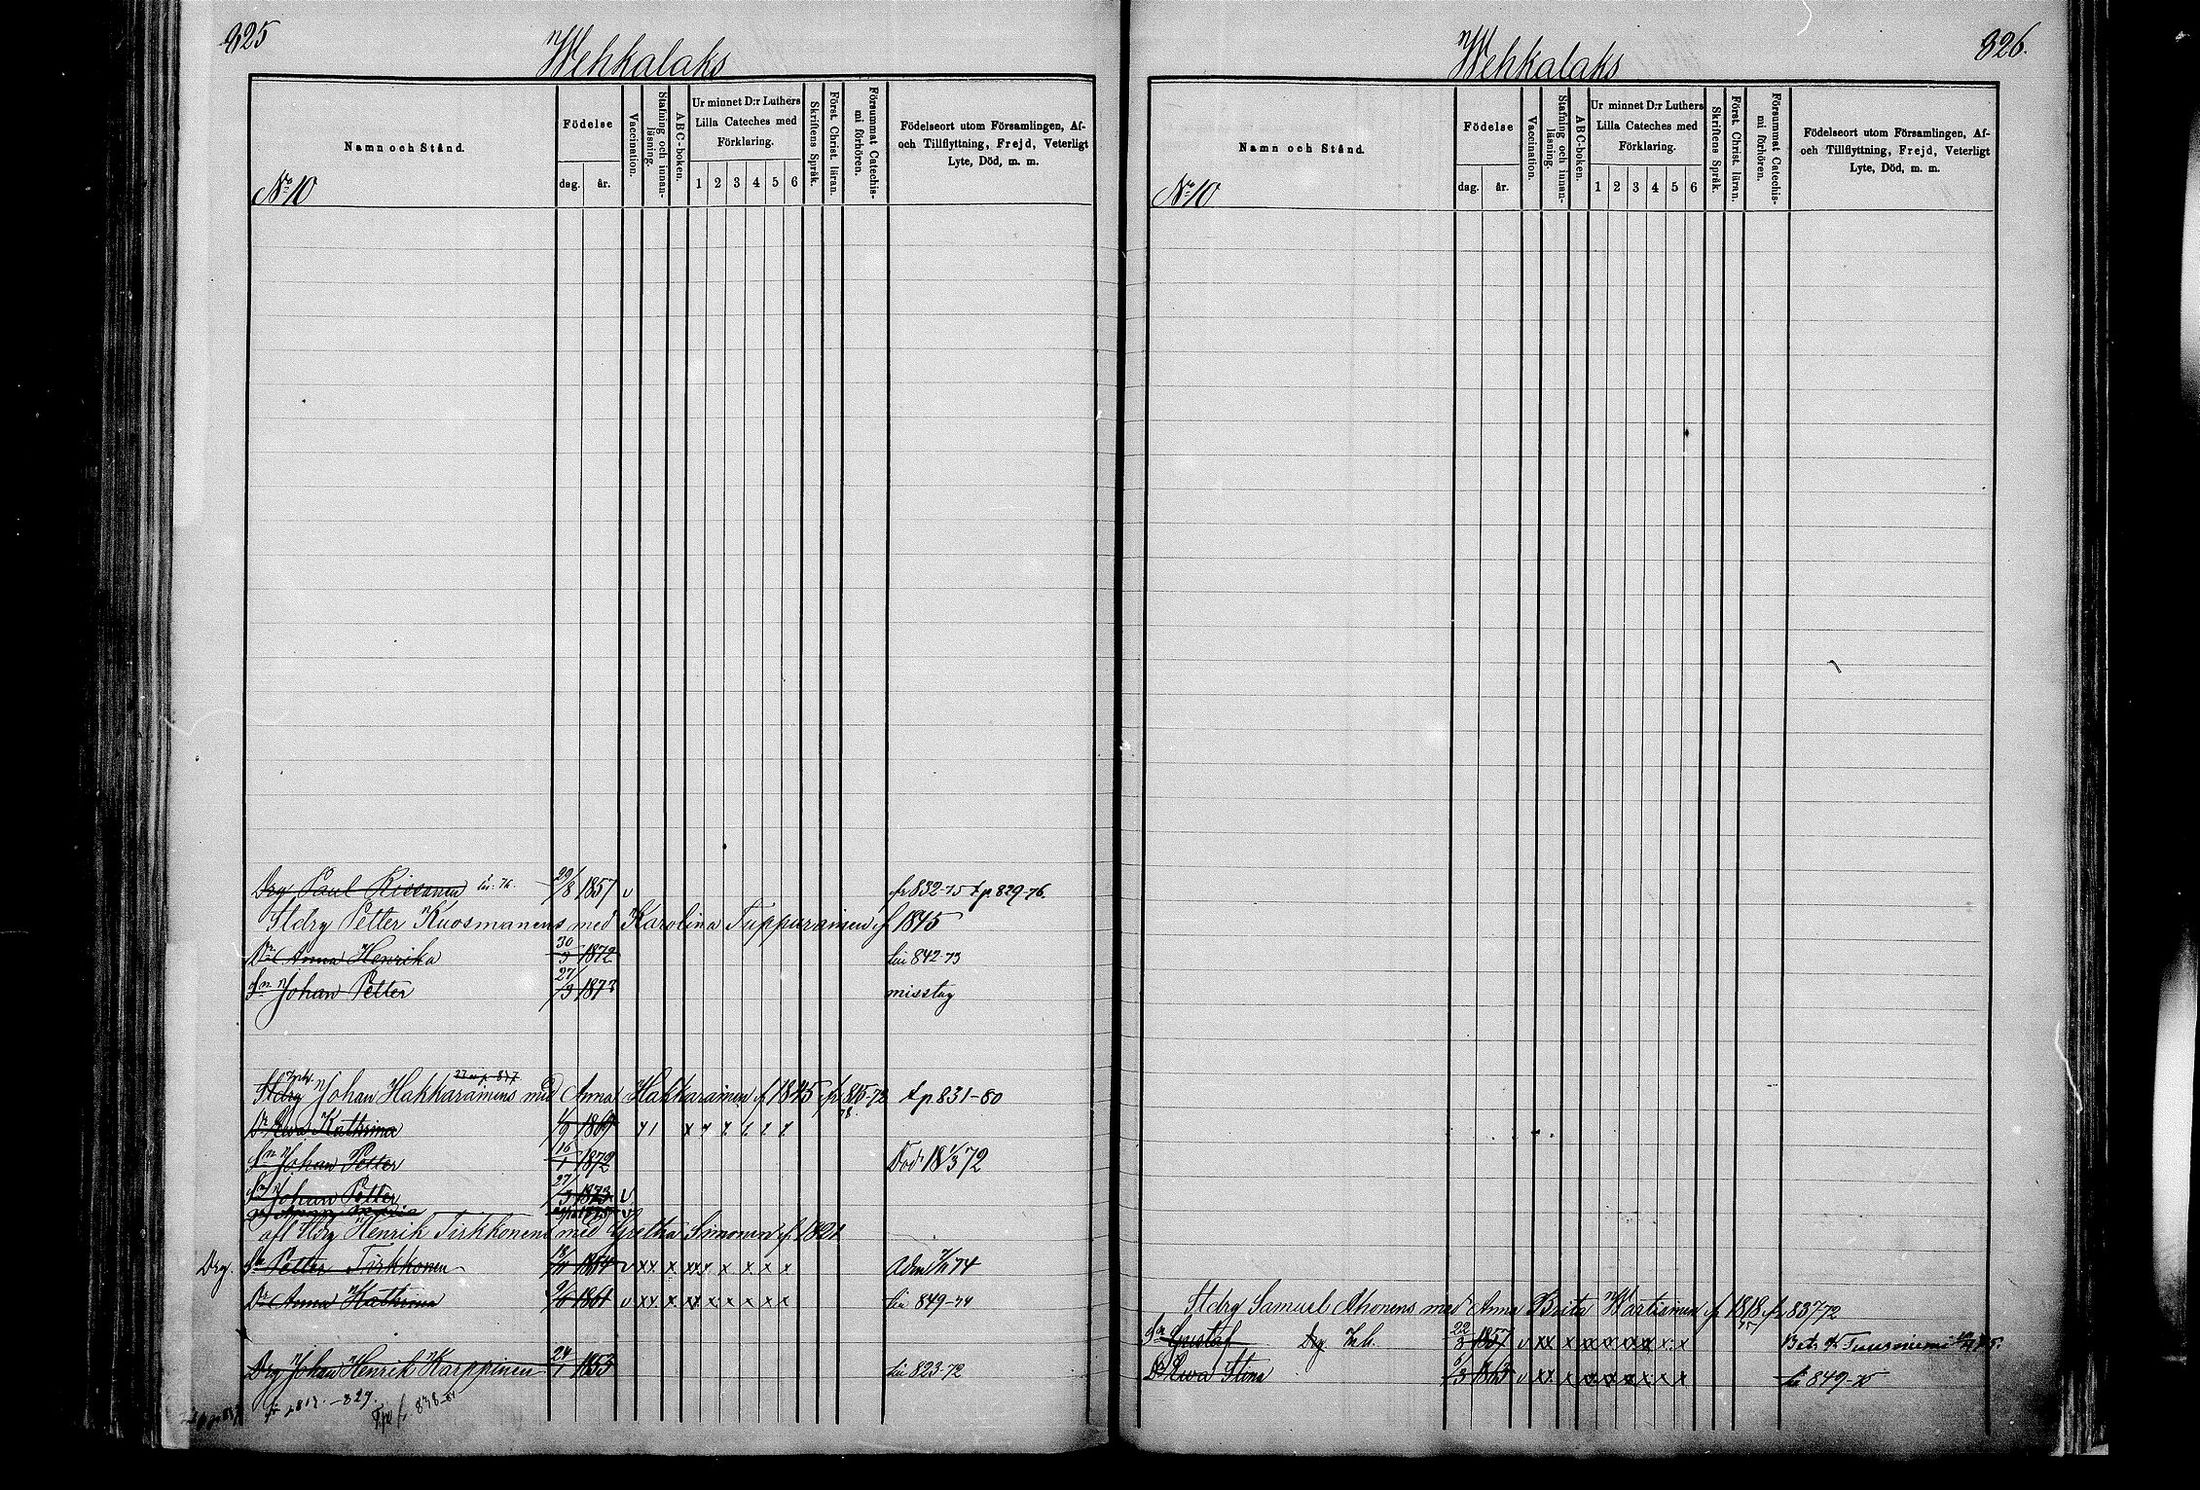 825
Wehkalaks
Namn och Stånd.
Födelse
dag. år.
Vaccination.
Stafning och innan-
läsning.
ABC-boken.
Ur minnet D:r Luthers
Lilla Cateches med
Förklaring.
1 2 3 4 5 6
Skriftens Språk.
Först. Christ. läran.
Försummat Catechis-
mi förhören.
Födelseort utom Församlingen, Af-
och Tillflyttning, Frejd, Veterligt
Lyte, Död, m. m.
No 10
Drg Paul 29/8 1857 v fr 832-75 t p 829-76.
Stdrg Petter Kuosmanens med Karolina Tuppurainen f 1845
Dr Anna Henrika 30/3 1872 842-73
Sn Johan Petter 27/3 1873 misstag
Stdrg Johan Hakkarainens med Anna Hakkarainen f 1845 fr 845-72 t p 831-80
Dr Ewa Kathrina 1869
Sn Johan Petter 16/1 1872 Död 18 1/3 72
Sn Johan Petter 27/3 1873 v
Anna Maria
afl Stdrg Henrik Tirkkonens med Gretha Simonen f. 1821
Drg. Sn Petter Tirkkonen 1854 v x x x x x x x x x x 74
Dr Anna Kathrina 1861 v x x x x x x x x x 849-74
Drg Johan Henrik Karppinen 24/1 1853 823-72
826.
Wehkalaks
Namn och Stånd.
Födelse
dag. år.
Vaccination.
Stafning och innan-
läsning.
ABC-boken.
Ur minnet D:r Luthers
Lilla Cateches med
Förklaring.
1 2 3 4 5 6
Skriftens Språk.
Först. Christ. läran.
Försummat Catechis-
mi förhören.
Födelseort utom Församlingen, Af-
och Tillflyttning, Frejd, Veterligt
Lyte, Död, m. m.
No 10
Stdrg Samuel Ahonens med Anna Brita Martiainen f 1818 fr 837-72
Sn Gustaf Drg Inh. 22/3 1857 v x x x x x x x x x Bet. Tuusniemi
Dr Ewa Stina 6/3 1863 v x x x x x x x x x 849-75